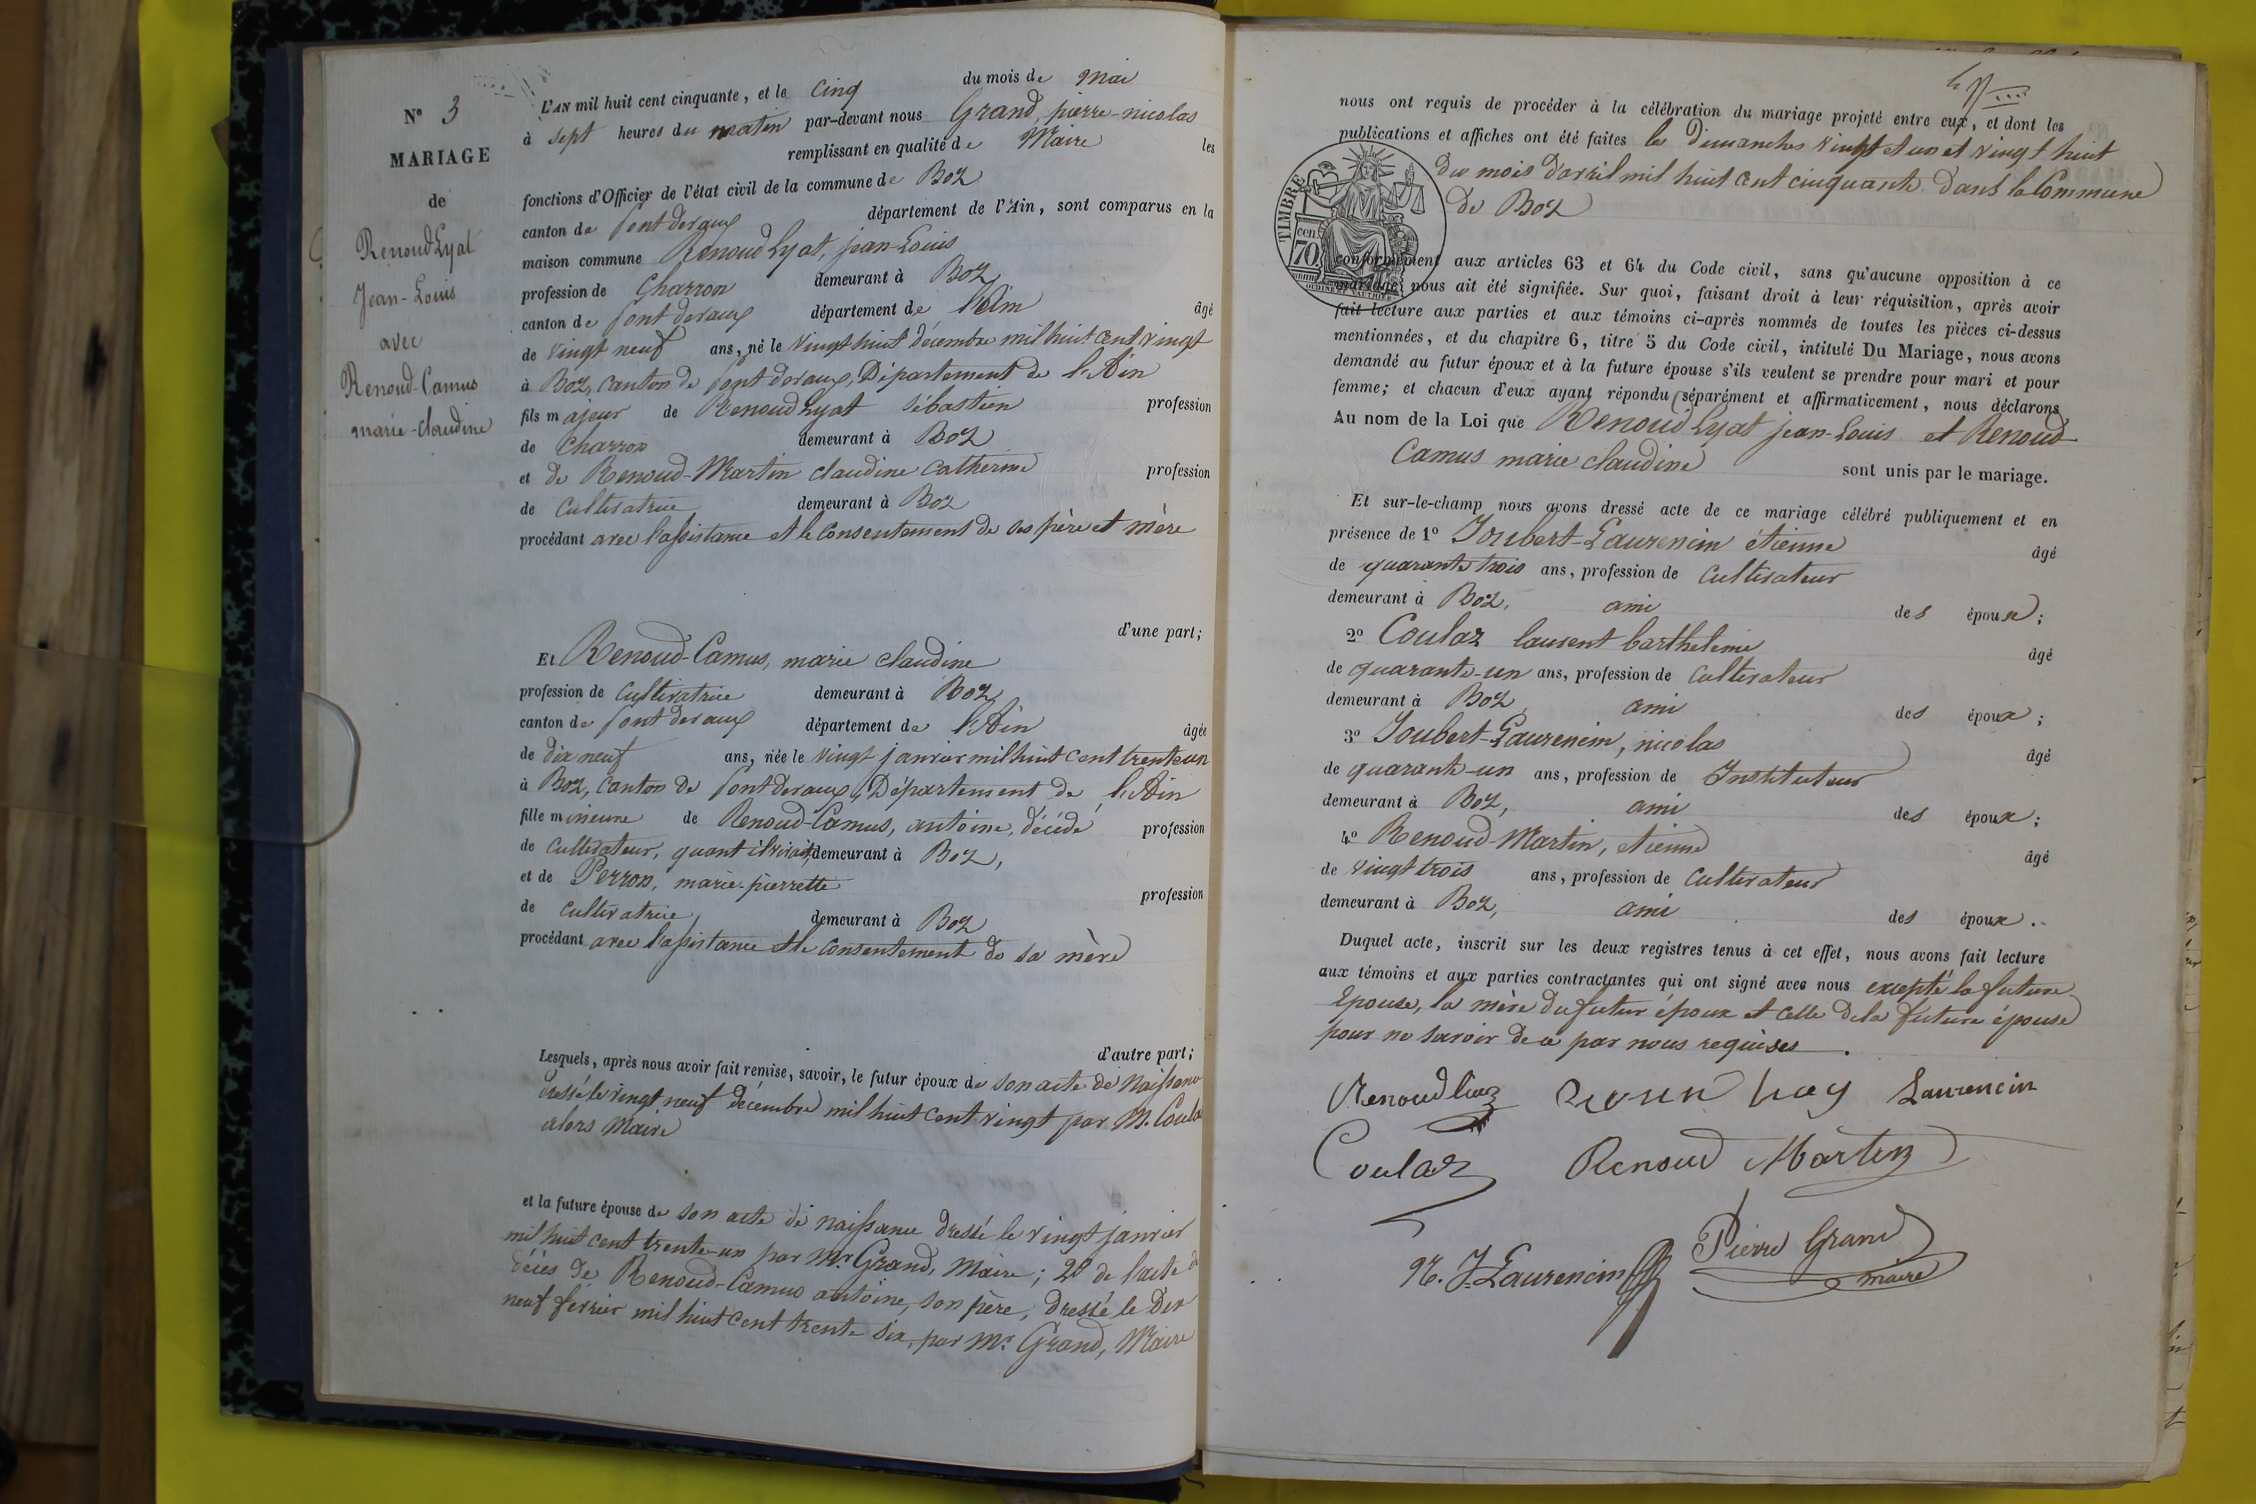 N° 3
MARIAGE
de
Renoud Lyat
Jean-Louis
avec
Renoud-Camus
marie-claudine
L'AN mil huit cent cinquante, et le cinq du mois de mai
à sept heures du matin par-devant nous Grand, pierre-nicolas
remplissant en qualité de Maire les
fonctions d'Officier de l'état civil de la commune de Boz
canton de pont devaux département de l'Ain, sont comparus en la
maison commune Renoud Lyat, jean-Louis
profession de Charron demeurant à Boz
canton de pont devaux département de l'Ain âgé
de vingt neuf ans, né le vingt huit décembre mil huit cent vingt
à Boz, canton de pont devaux, Département de l'Ain
fils majeur de Renoud Lyat Sébastien profession
de Charron demeurant à Boz
et de Renoud-Martin claudine catherine profession
de cultivatrice demeurant à Boz
procédant avec l'assistance et le consentement de ses père et mère
d'une part;
Et Renoud-Camus, marie claudine
profession de cultivatrice demeurant à Boz,
canton de pont devaux département de l'Ain âgée
de dix neuf ans, née le vingt janvier mil huit cent trente un
à Boz, canton de pont devaux, Département de l'Ain
fille mineure de Renoud-Camus, antoine, décédé profession
de cultivateur, quant il vivait, demeurant à Boz,
et de Perron, marie-pierrette profession
de cultivatrice, demeurant à Boz
procédant avec l'assistance et le consentement de sa mère
d'autre part;
Lesquels, après nous avoir fait remise, savoir, le futur époux de son acte de Naissance
dressé le vingt neuf décembre mil huit cent vingt par M. Coulaz
alors Maire
et la future épouse de son acte de naissance dressé le vingt janvier
mil huit cent trente-un par Mr Grand, Maire; 2° de l'acte de
décès de Renoud-Camus antoine, son père, dressé le Dix
neuf février mil huit cent trente six, par Mr Grand, Maire
nous ont requis de procéder à la célébration du mariage projeté entre eux, et dont les
publications et affiches ont été faites les Dimanches vingt et un et vingt huit
du mois d'avril mil huit cent cinquante dans la Commune
de Boz
TIMBRE
cen.
70
conformément aux articles 63 et 64 du Code civil, sans qu'aucune opposition à ce
mariage nous ait été signifiée. Sur quoi, faisant droit à leur réquisition, après avoir
fait lecture aux parties et aux témoins ci-après nommés de toutes les pièces ci-dessus
mentionnées, et du chapitre 6, titre 5 du Code civil, intitulé Du Mariage, nous avons
demandé au futur époux et à la future épouse s'ils veulent se prendre pour mari et pour
femme; et chacun d'eux ayant répondu séparément et affirmativement, nous déclarons
Au nom de la Loi que Renoud Lyat jean-Louis et Renoud-
Camus marie claudine sont unis par le mariage.
Et sur-le-champ nous avons dressé acte de ce mariage célébré publiquement et en
présence de 1° Joubert-Laurencin étienne âgé
de quarante trois ans, profession de cultivateur
demeurant à Boz, ami des époux;
2° Coulaz laurent barthelemie âgé
de quarante-un ans, profession de cultivateur
demeurant à Boz, ami des époux;
3° Joubert-Laurencin, nicolas âgé
de quarante-un ans, profession de Instituteur
demeurant à Boz, ami des époux;
4° Renoud-Martin, étienne âgé
de vingt trois ans, profession de cultivateur
demeurant à Boz, ami des époux.
Duquel acte, inscrit sur les deux registres tenus à cet effet, nous avons fait lecture
aux témoins et aux parties contractantes qui ont signé avec nous excepté la future
Epouse, la mère du futur époux et celle de la future épouse
pour ne savoir de ce par nous requises.
Laurencin
Coulaz Renoud Martin
N. J. Laurencin Pierre Grand
maire